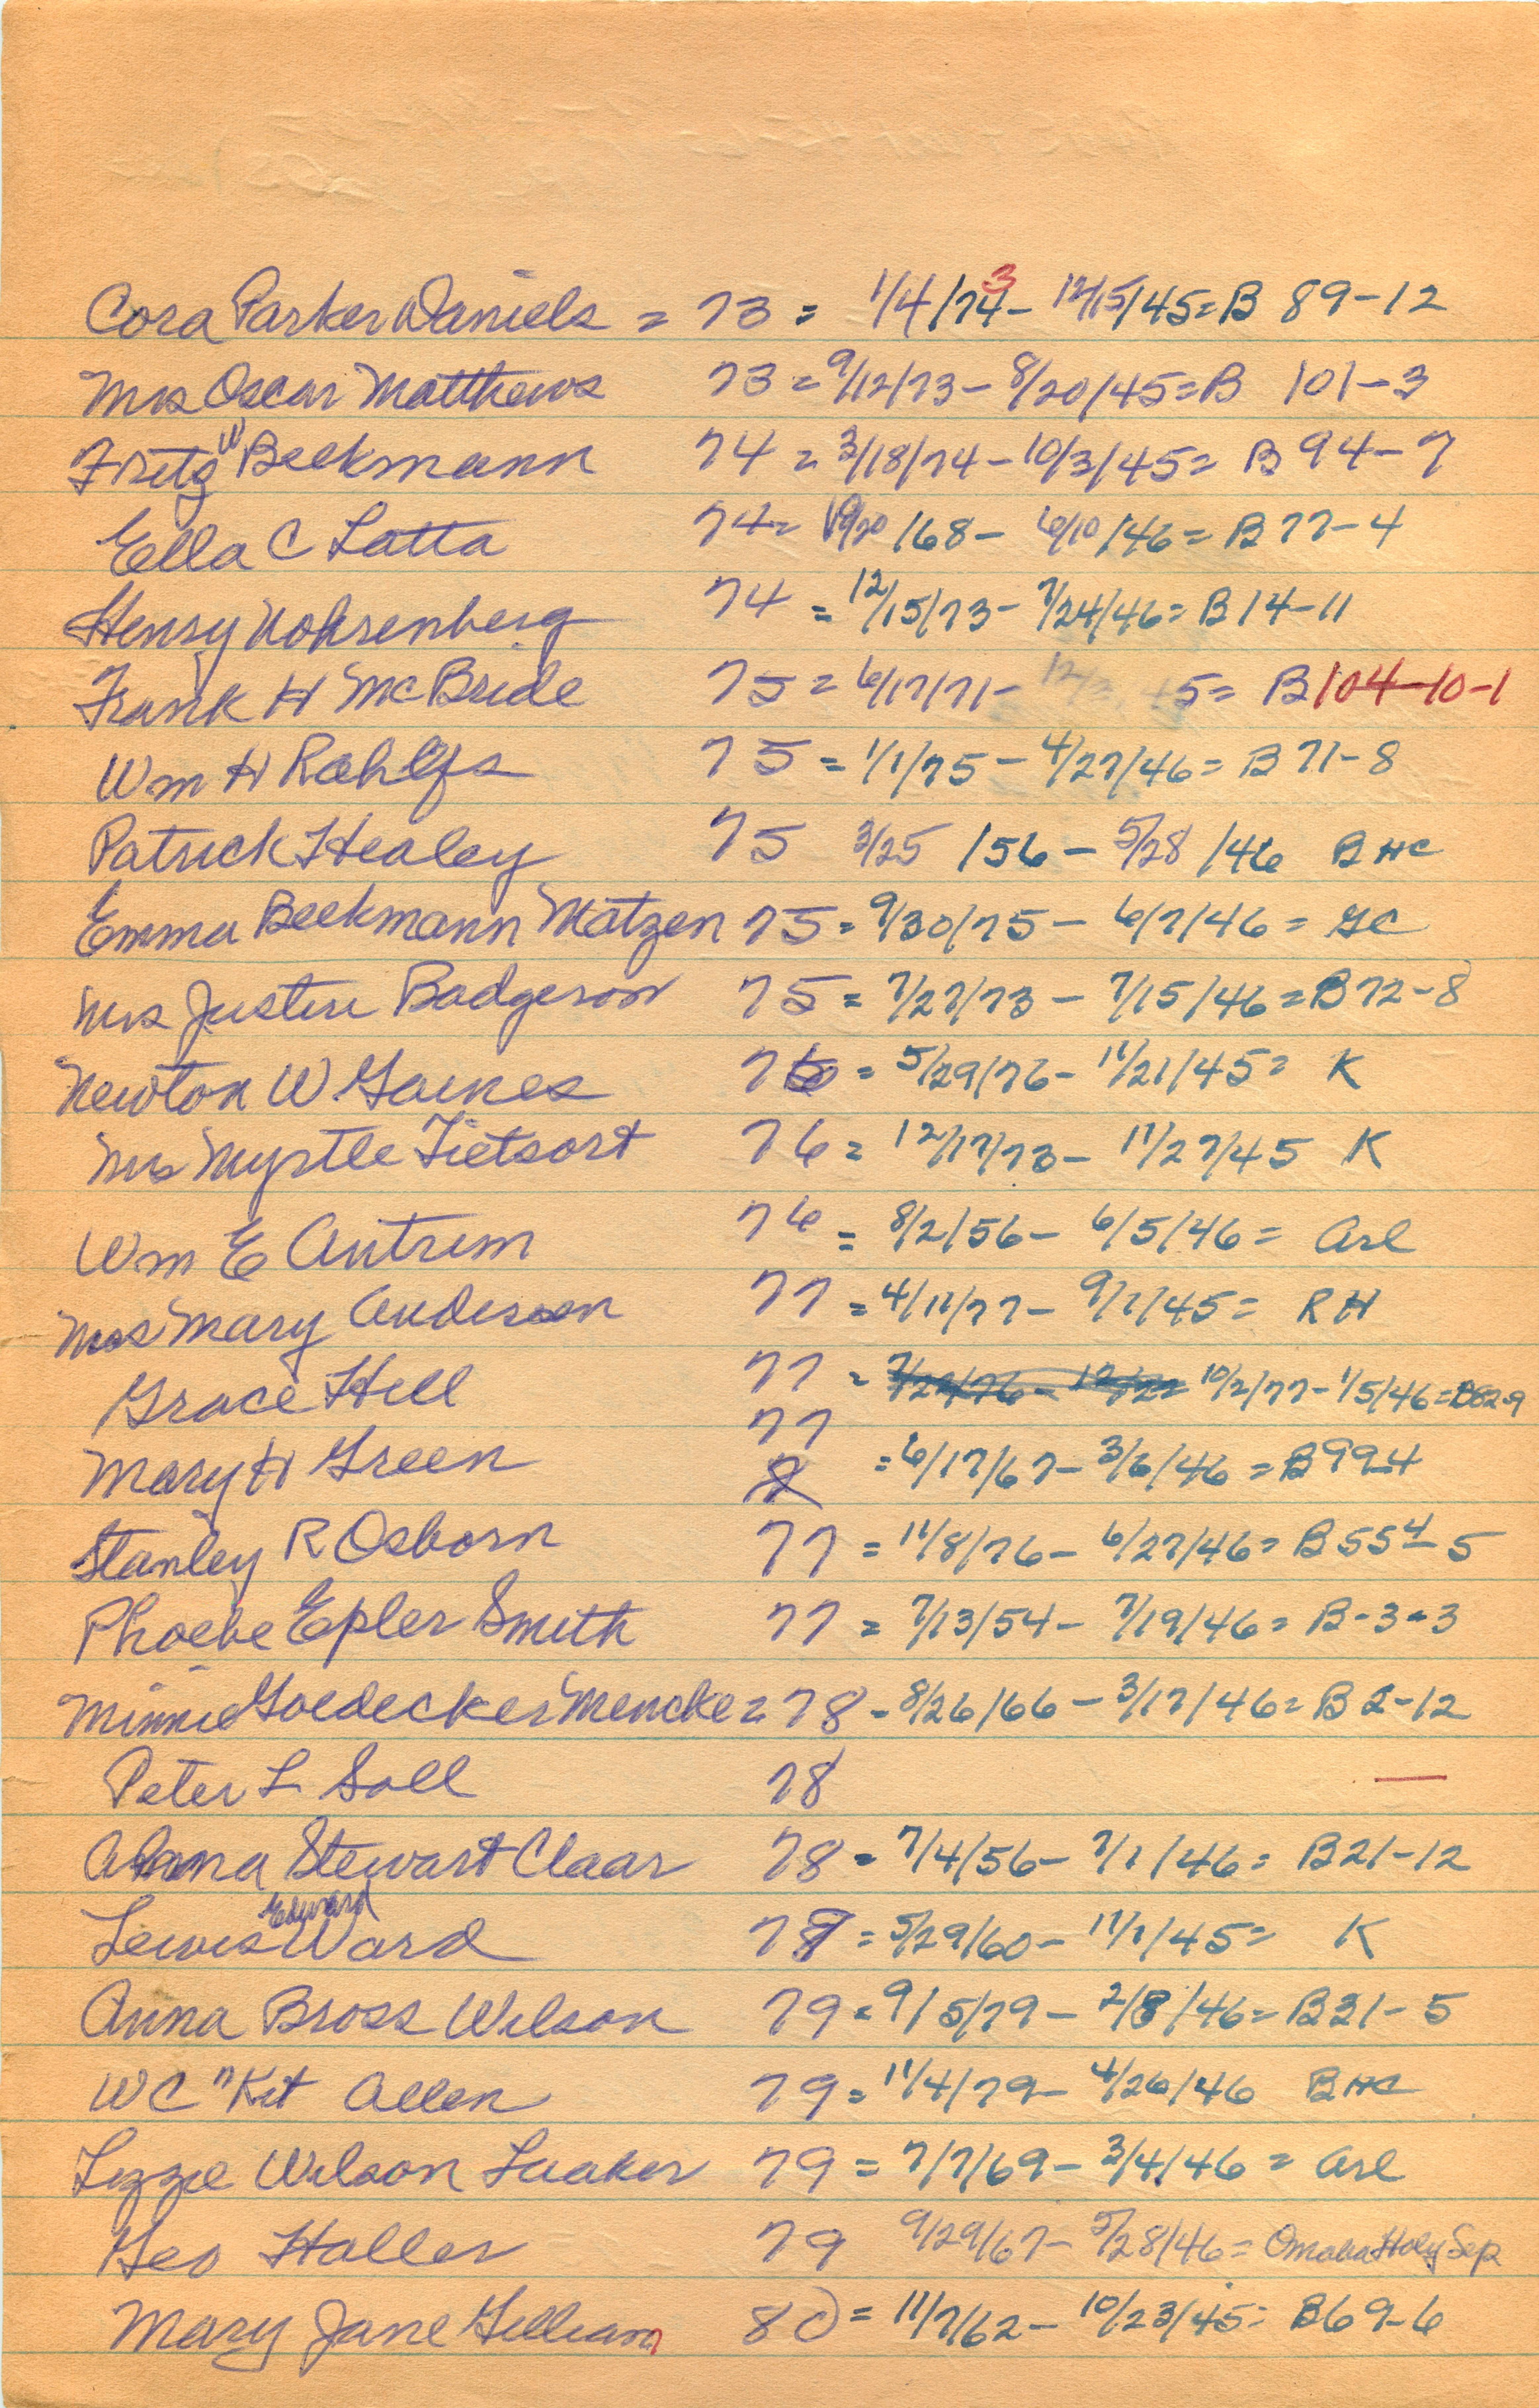 Cora Parker Daniels = 73 = 1/4/74 3 - 12/15/45 = B 89-12
Mrs Oscar Matthews 73 = 9/12/73 - 8/20/45 = B 101-3
Fritz W Beekmann 74 = 3/18/74 - 10/3/45 = B 94-7
Ella C Latta 74 = /68 - 6/10/46 = B 77-4
Henry Wohrenberg 74 = 12/15/73 - 7/24/46 = B 14-11
Frank H McBride 75 = 6/17/71 - 5 = B 104-10-1
Wm H Rahlfs 75 = 1/1/75 - 4/27/46 = B 71-8
Patrick Healey 75 3/25/56 - 5/28/46 B HC
Emma Beekmann Matzen 75 = 9/30/75 - 6/7/46 = GC
Mrs Justin Badgerow 75 = 7/27/73 - 7/15/46 = B 72-8
Newton W Gaines 76 = 5/29/76 - 11/21/45 = K
Mrs Myrtle Tietsort 76 = 12/17/73 - 11/27/45 K
Wm E Antrim 76 = 8/2/56 - 6/5/46 = Arl
Mrs Mary Anderson 77 = 4/11/77 - 9/7/45 = RH
Grace Hill 77 = 10/2/77 - 1/5/46 = B82-9
Mary H Green 77 = 6/17/67 - 3/6/46 = B 99-4
Stanley R Osborn 77 = 11/8/76 - 6/27/46 = B 55 4 - 5
Phoebe Epler Smith 77 = 7/13/54 - 7/19/46 = B-3-3
Minnie Goedecker Mencke = 78 - 8/26/66 - 3/17/46 = B 2-12
Peter L Soll 78 —
Anna Stewart Claar 78 = 7/4/56 - 7/1/46 = B21-12
Lewis Edward Ward 78 = 5/29/60 - 11/1/45 = K
Anna Bross Wilson 79 = 9/5/79 - 2/8/46 = B31-5
WC "Kit Allen 79 = 11/4/79 - 4/26/46 B HC
Lizzie Wilson Laaker 79 = 7/7/69 - 3/4/46 = Arl
Geo Haller 79 9/29/67 - 5/28/46 = Omaha Holy Sep
Mary Jane Gilliam 80 = 11/7/62 - 10/23/45 = B69-6